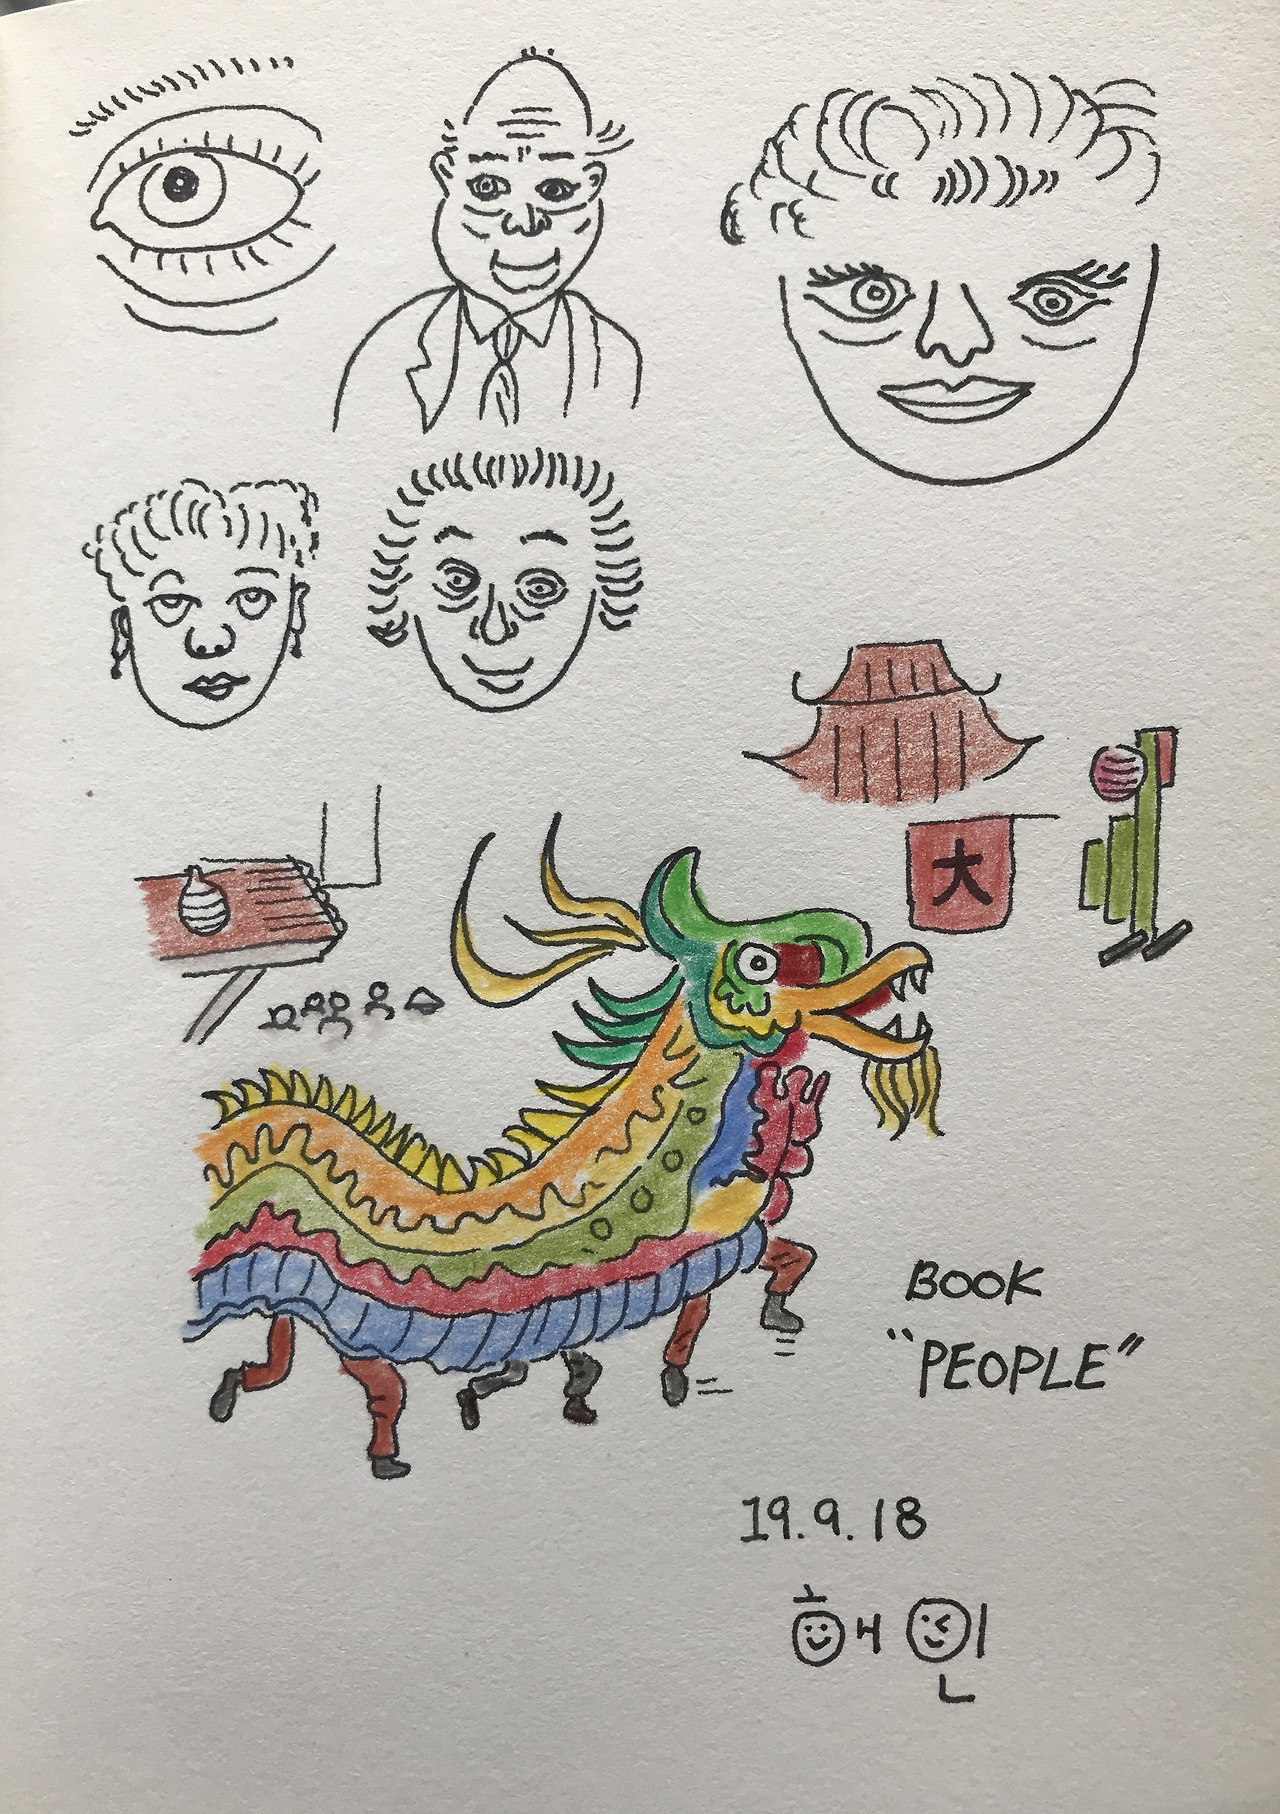 大
BOOK
"PEOPLE"
19.9.18
해인